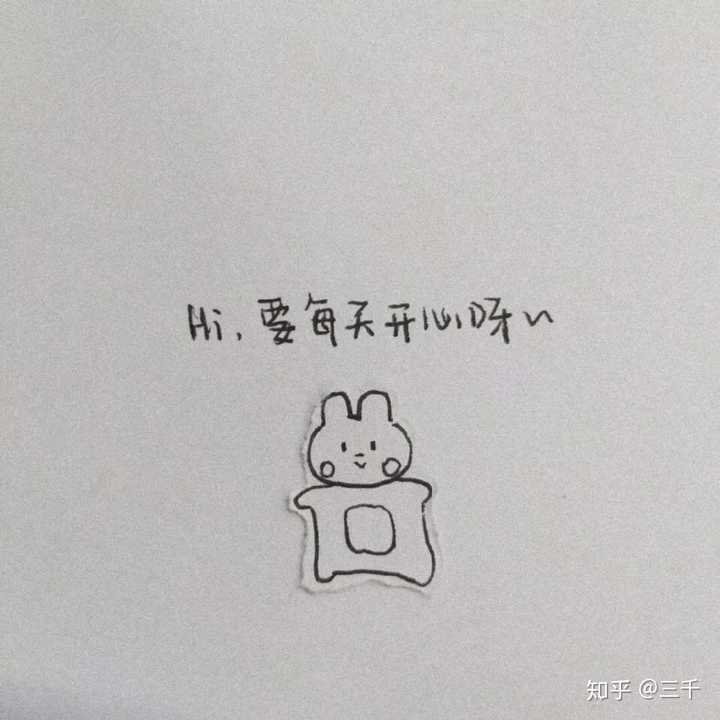 Hi,要每天开心呀~
知乎 @三千